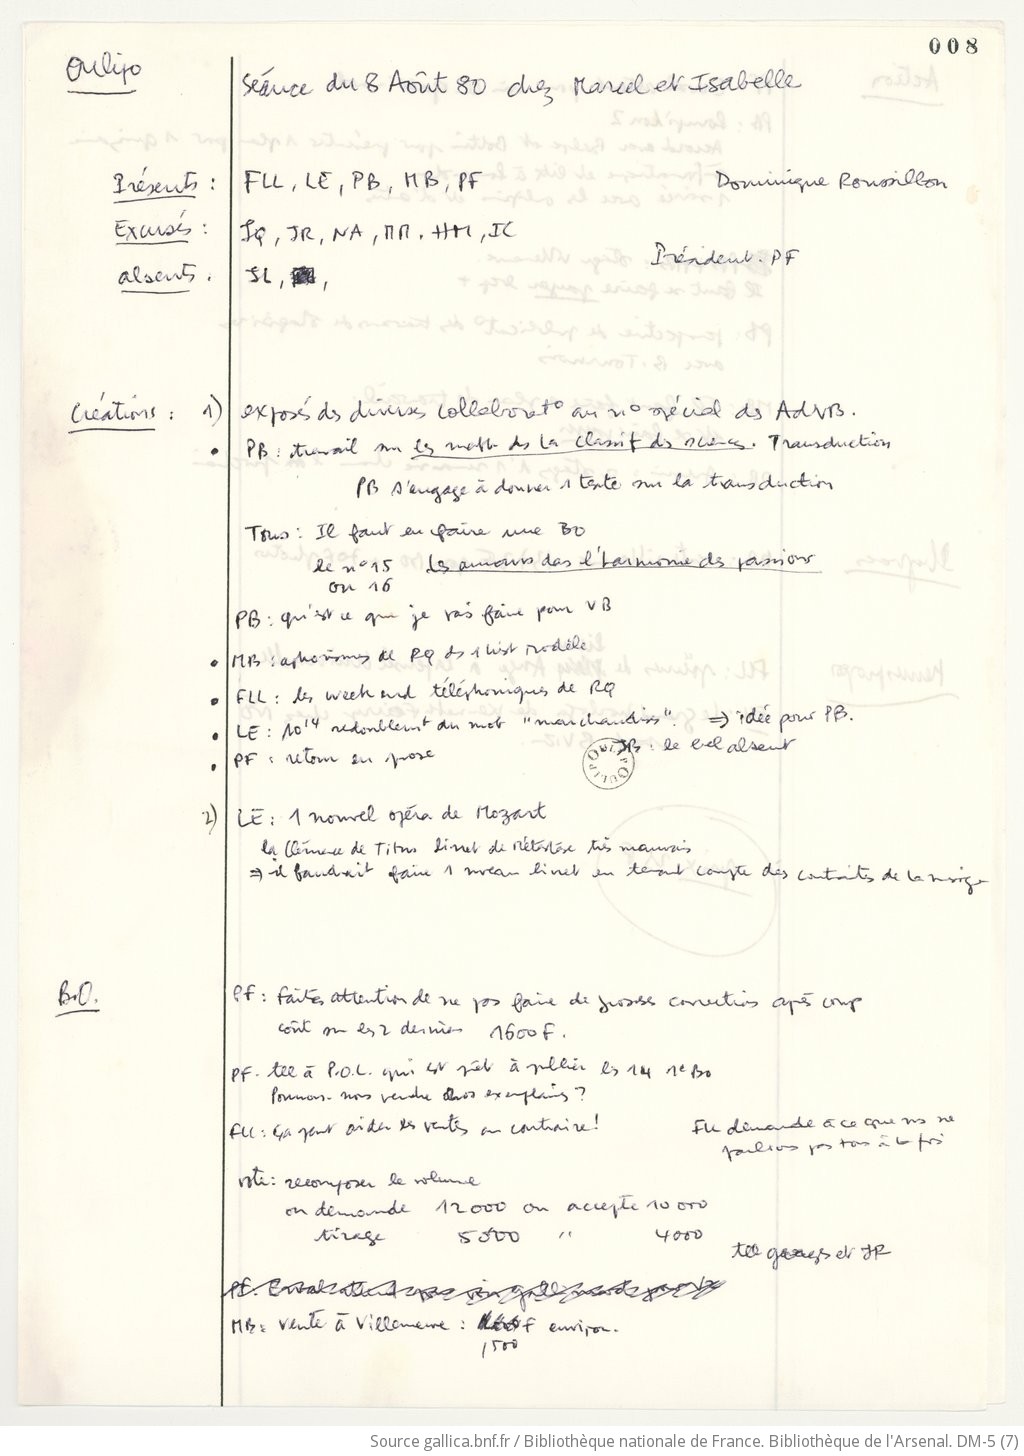 008
Oulipo
Séance du 8 Août 80 chez Marcel et Isabelle
Présents : FLL, LE, PB, MB, PF
Dominique Roussillon
Excusés : JQ, JR, NA, MM, HM, IC
Président. PF
absents. JL,
Créations : 1) exposés des diverses collaborato au no spécial des AdvB.
• PB : travail sur les maths ds la classif des sciences. Transduction
PB s'engage à donner 1 texte sur la transduction
Tous : Il faut en faire une BO
le no 15 les amours dans l'harmonie des passions
ou 16
PB : qu'est ce que je vais faire pour VB
• MB : aphorismes de RQ ds 1 hist modèle
• FLL : les week end téléphoniques de RQ
• LE : 10 14 redoublemt du mot "marchandises". ⇒ idée pour PB.
• PF : retour en prose
JB : le bel absent
OULIPO
2) LE : 1 nouvel opéra de Mozart
la Clémence de Titus livret de Métastase très mauvais
⇒ il faudrait faire 1 nveau livret en tenant compte des contraites de la musiqe
B.O.
PF : Faites attention de ne pas faire de grosses corrections après coup
coût sur les 2 dernières 1600F.
PF. tel à P.O.L. qui est prêt à publier les 14 1e BO
Pouvons-nous vendre nos exemplaires ?
FLL : ça peut aider les ventes au contraire !
FLL demande à ce que ns ne
parlions pas tous à la fois
vote : recomposer le volume
on demande 12000 on accepte 10000
tirage 5000 " 4000
tel et JR
MB : vente à Villeneuve : F environ.
1500
Source gallica.bnf.fr / Bibliothèque nationale de France. Bibliothèque de l'Arsenal. DM-5 (7)